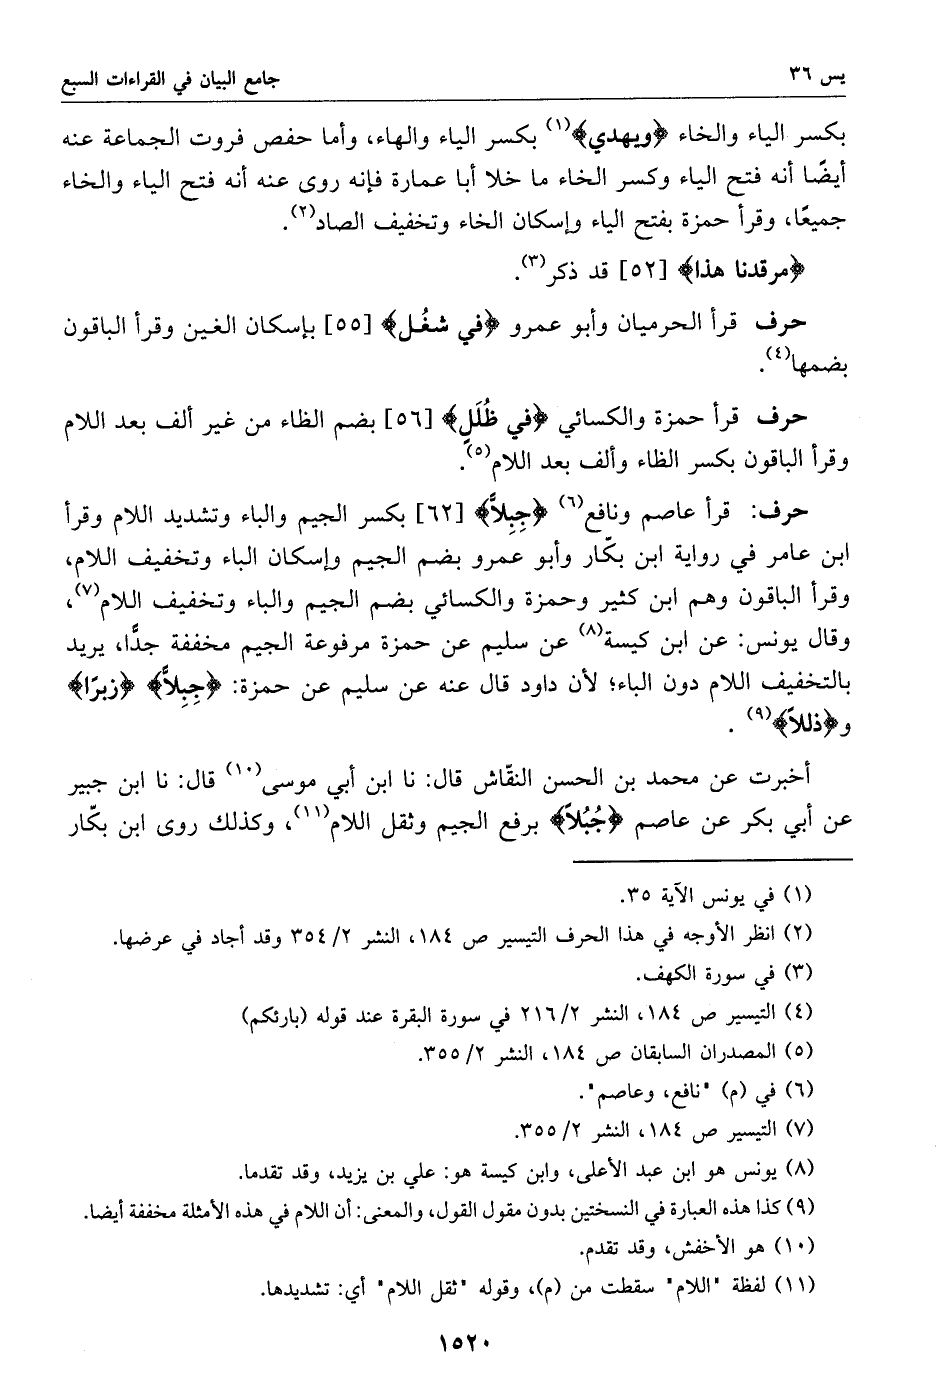 يس ٣٦
جامع البيان في القراءات السبع
بكسر الياء والخاء ﴿ويهدي﴾(١) بكسر الياء والهاء، وأما حفص فروت الجماعة عنه
أيضًا أنه فتح الياء وكسر الخاء ما خلا أبا عمارة فإنه روى عنه أنه فتح الياء والخاء
جميعًا، وقرأ حمزة بفتح الياء وإسكان الخاء وتخفيف الصاد(٢).
﴿مرقدنا هذا﴾ [٥٢] قد ذكر(٣).
حرف قرأ الحرميان وأبو عمرو ﴿في شغُل﴾ [٥٥] بإسكان الغين وقرأ الباقون
بضمها(٤).
حرف قرأ حمزة والكسائي ﴿في ظُلَلٍ﴾ [٥٦] بضم الظاء من غير ألف بعد اللام
وقرأ الباقون بكسر الظاء وألف بعد اللام(٥).
حرف: قرأ عاصم ونافع(٦) ﴿جِبِلاًّ﴾ [٦٢] بكسر الجيم والباء وتشديد اللام وقرأ
ابن عامر في رواية ابن بكّار وأبو عمرو بضم الجيم وإسكان الباء وتخفيف اللام،
وقرأ الباقون وهم ابن كثير وحمزة والكسائي بضم الجيم والباء وتخفيف اللام(٧)،
وقال يونس: عن ابن كيسة(٨) عن سليم عن حمزة مرفوعة الجيم مخففة جدًّا، يريد
بالتخفيف اللام دون الباء؛ لأن داود قال عنه عن سليم عن حمزة: ﴿جِبِلاًّ﴾ ﴿زبرًا﴾
و﴿ذللاً﴾(٩) .
أخبرت عن محمد بن الحسن النقّاش قال: نا ابن أبي موسى(١٠) قال: نا ابن جبير
عن أبي بكر عن عاصم ﴿جُبُلاًّ﴾ برفع الجيم وثقل اللام(١١)، وكذلك روى ابن بكّار
(١) في يونس الآية ٣٥.
(٢) انظر الأوجه في هذا الحرف التيسير ص ١٨٤، النشر ٢/ ٣٥٤ وقد أجاد في عرضها.
(٣) في سورة الكهف.
(٤) التيسير ص ١٨٤، النشر ٢/ ٢١٦ في سورة البقرة عند قوله (بارئكم)
(٥) المصدران السابقان ص ١٨٤، النشر ٢/ ٣٥٥.
(٦) في (م) "نافع، وعاصم".
(٧) التيسير ص ١٨٤، النشر ٢/ ٣٥٥.
(٨) يونس هو ابن عبد الأعلى، وابن كيسة هو: علي بن يزيد، وقد تقدما.
(٩) كذا هذه العبارة في النسختين بدون مقول القول، والمعنى: أن اللام في هذه الأمثلة مخففة أيضا.
(١٠) هو الأخفش، وقد تقدم.
(١١) لفظة "اللام" سقطت من (م)، وقوله "ثقل اللام" أي: تشديدها.
١٥٢٠